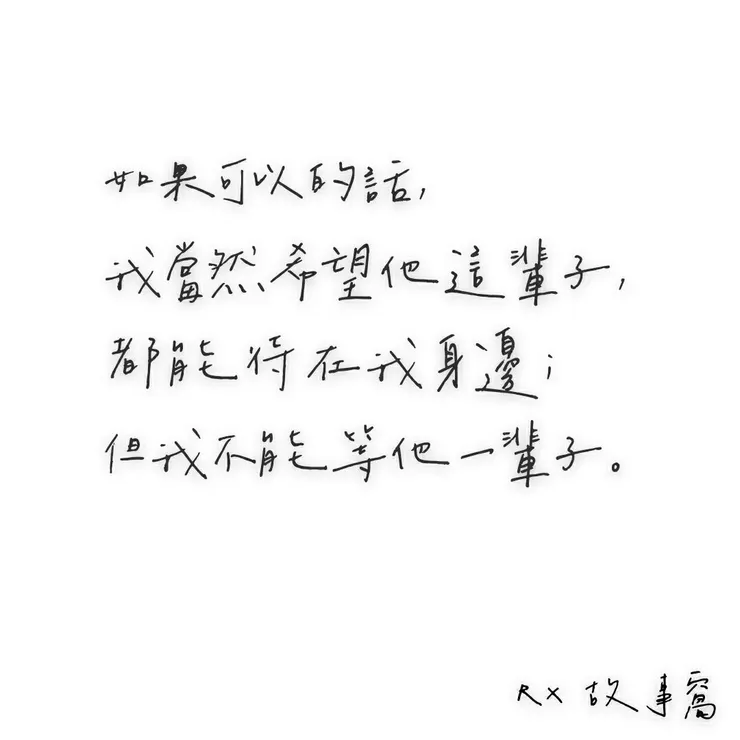 如果可以的話,
我當然希望他這輩子,
都能待在我身邊;
但我不能等他一輩子。
RX 故事窩